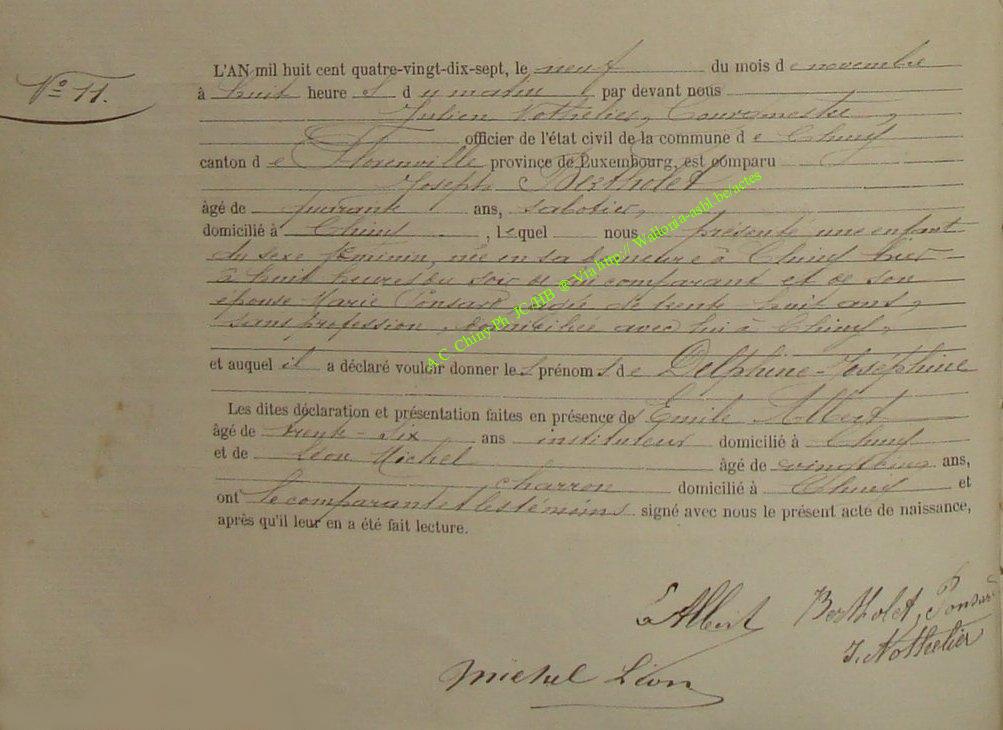 N° 11.
L'AN mil huit cent quatre-vingt-dix-sept, le neuf du mois de novembre
à huit heures du matin par devant nous
Julien Nothelier, Bourgmestre,
officier de l'état civil de la commune de Chiny
canton de Florenville province de Luxembourg, est comparu
Joseph Bertholet
âgé de quarante ans, sabotier,
domicilié à Chiny, lequel nous présenté une enfant
du sexe féminin, née en sa demeure à Chiny hier
à huit heures du soir de lui comparant et de son
épouse Marie Ponsard âgée de trente huit ans,
sans profession, domiciliée avec lui à Chiny,
et auquel il a déclaré vouloir donner les prénoms de Delphine-Joséphine
Les dites déclaration et présentation faites en présence de Emile Albert
âgé de trente-six ans instituteur domicilié à Chiny
et de Léon Michel âgé de vingt ans,
charron domicilié à Chiny et
ont le comparant et les témoins signé avec nous le présent acte de naissance,
après qu'il leur en a été fait lecture.
A.C. Chiny Ph. JC/HB @ Via http:// Wallonia-asbl.be/actes
E Albert Bertholet, Ponsard
J. Nothelier
Michel Léon